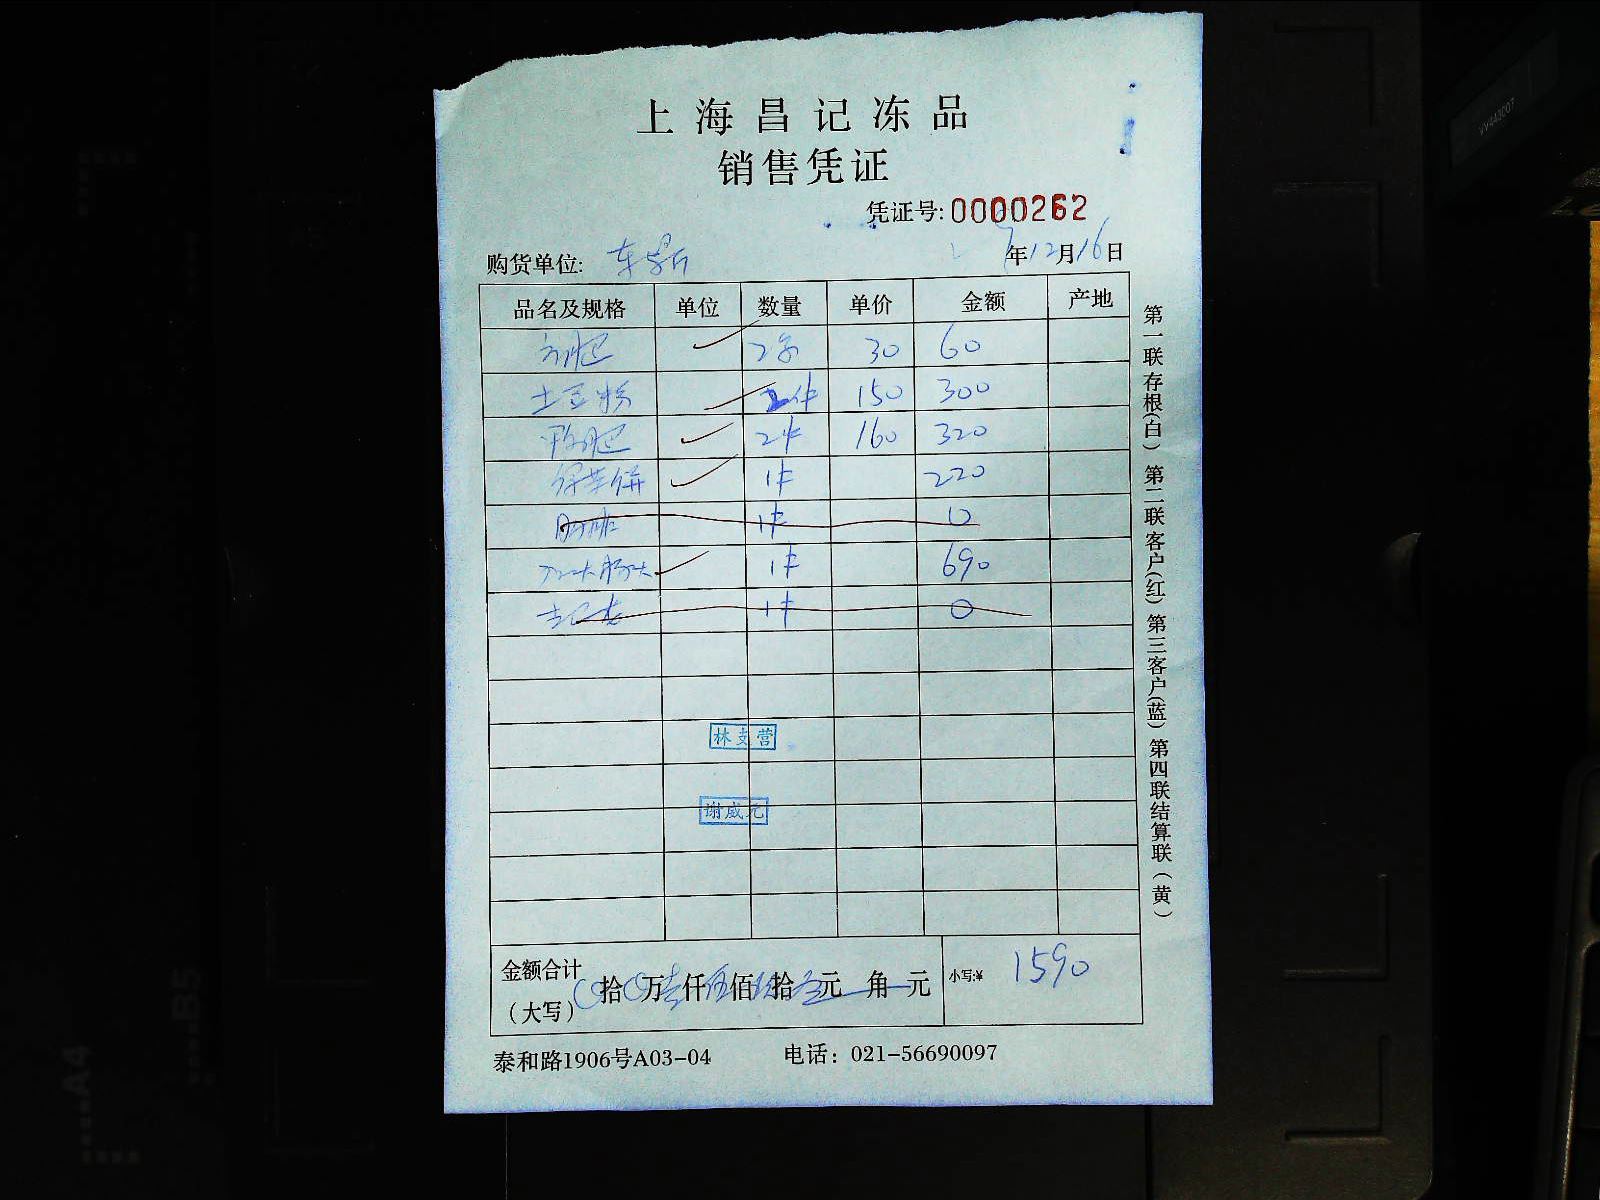 上海昌记冻品
销售凭证
凭证号:0000262
购货单位: 年12月16日
品名及规格 单位 数量 单价 金额 产地
2 30 60
土豆粉 2件 150 300
2件 160 320
1件 220
1件 0
1件 690
1件 0
林支营
谢威元
金额合计
(大写) 0拾0万壹仟伍佰玖拾元角元 小写:¥ 1590
泰和路1906号A03-04 电话：021-56690097
第一联存根(白) 第二联客户(红) 第三客户(蓝) 第四联结算联(黄)
A4
B5
VV443007